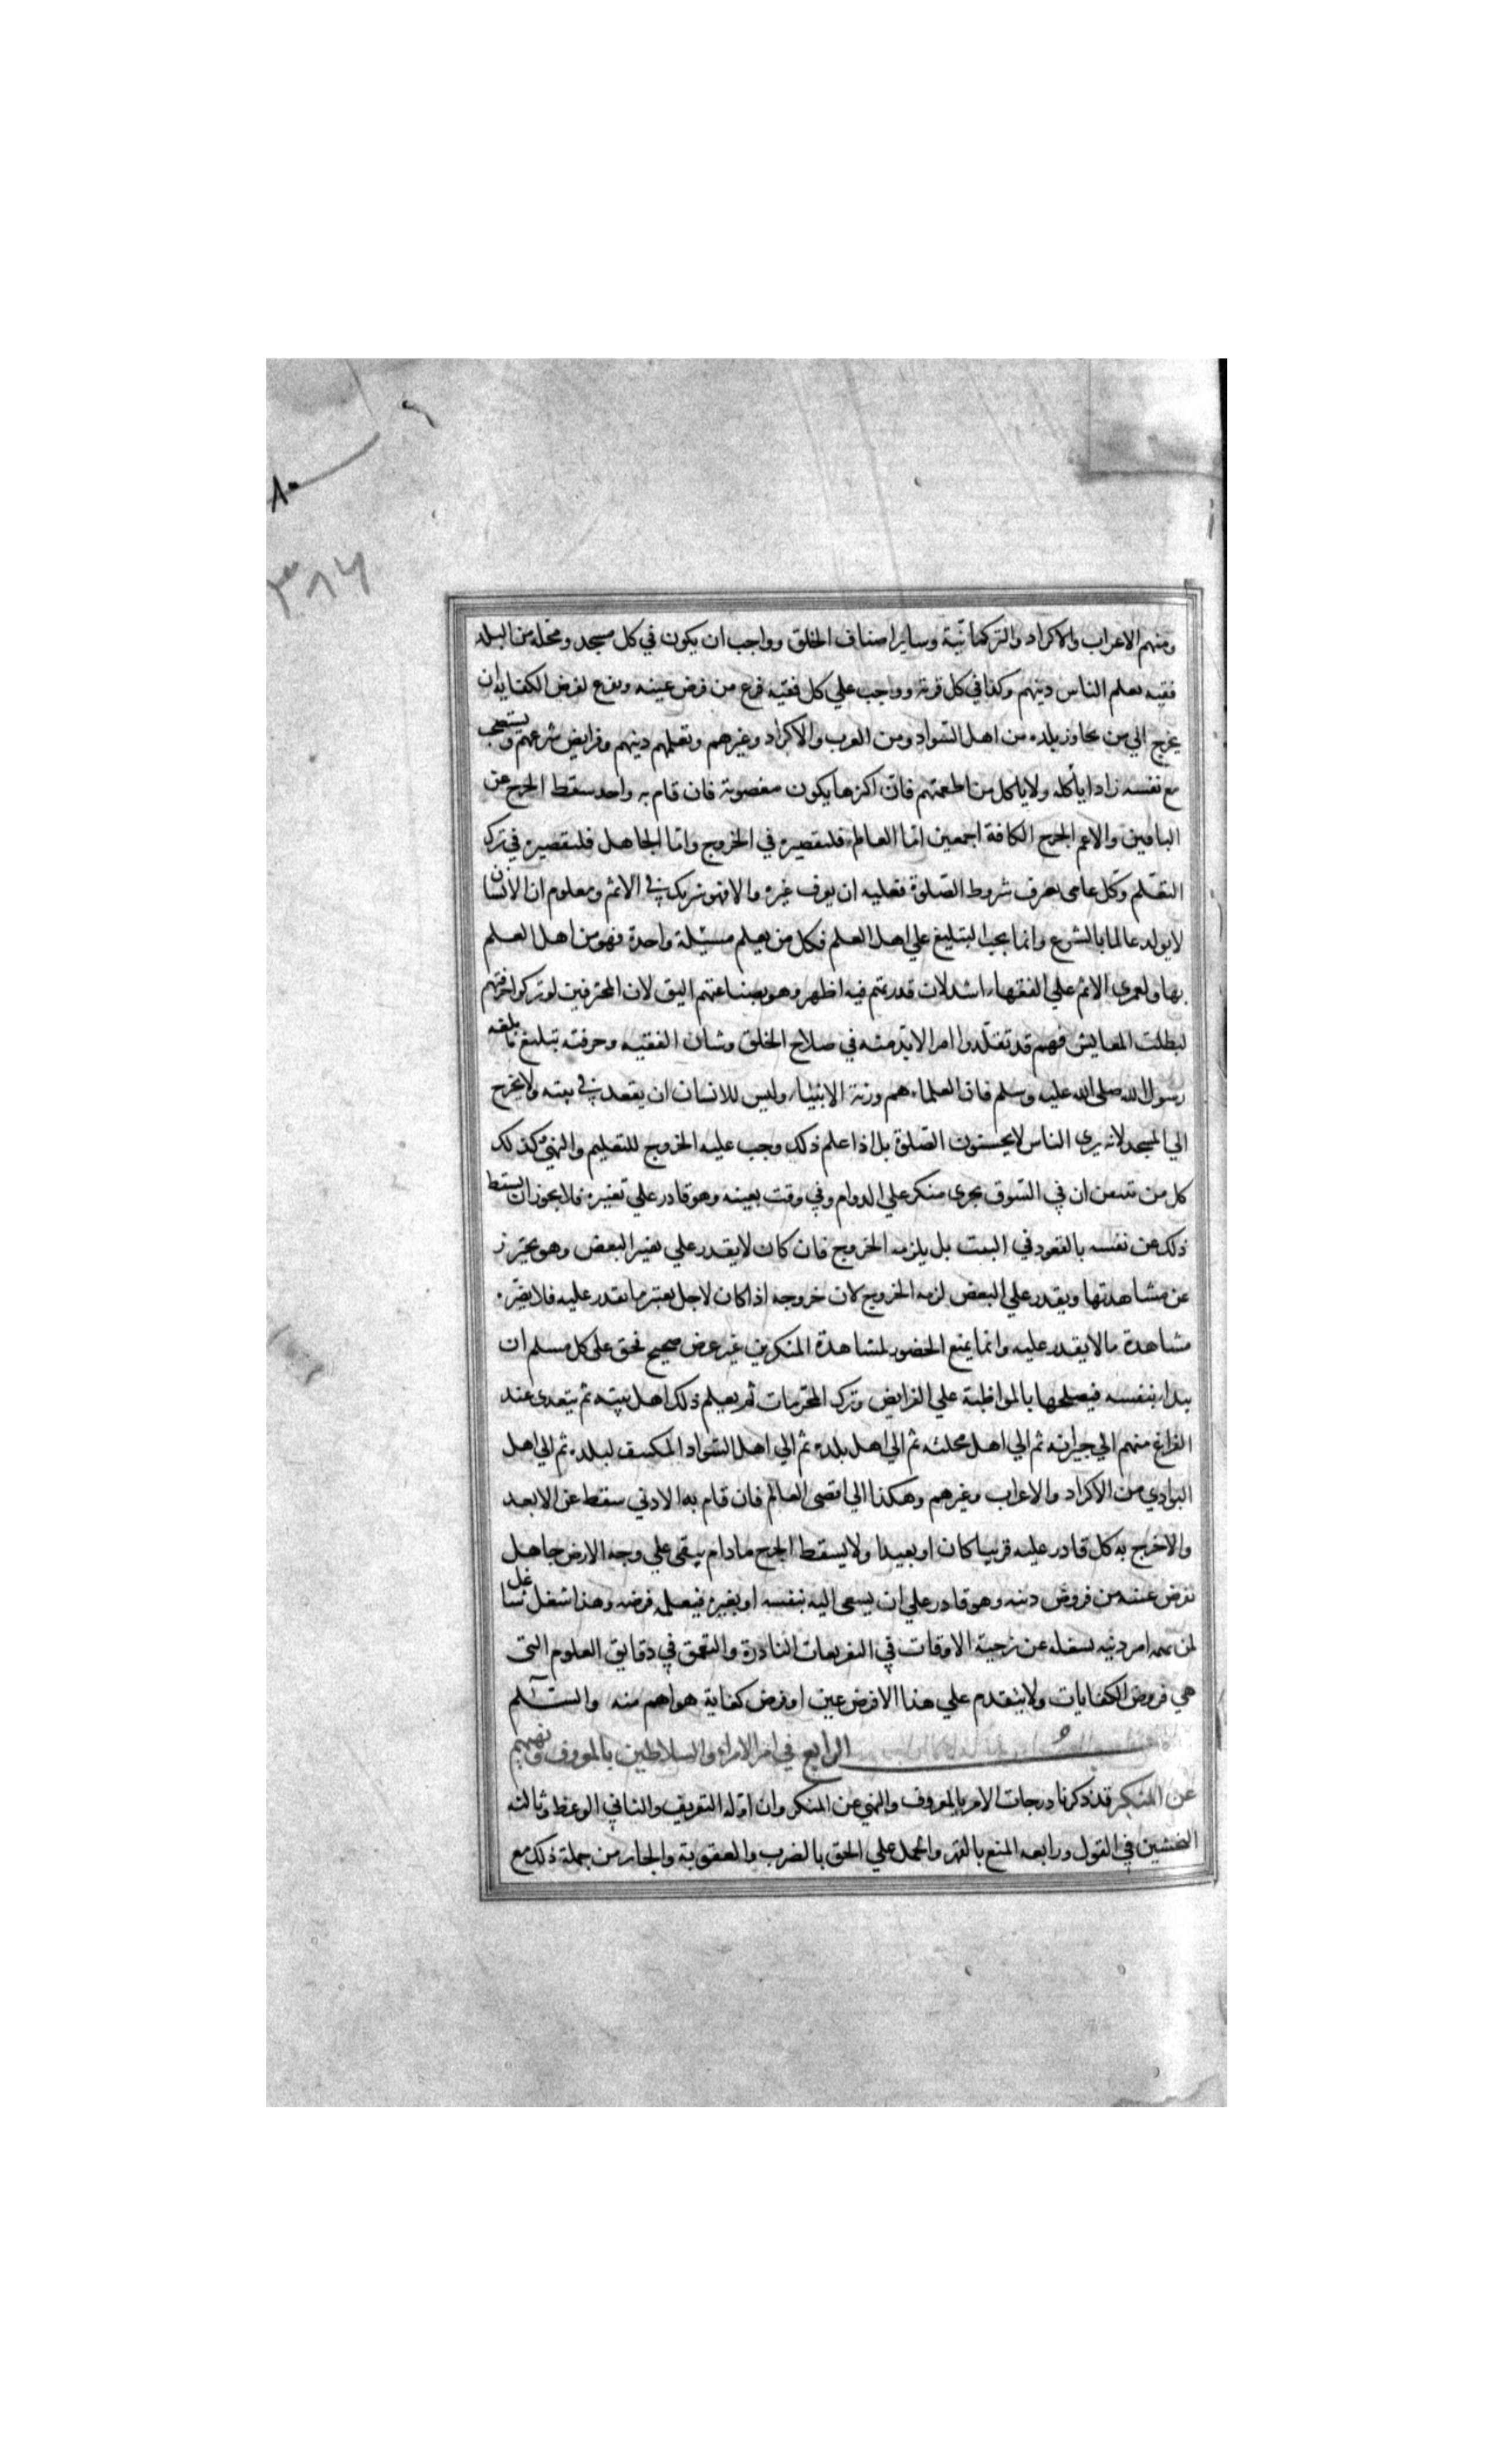 ومنهم الاعراب والاكراد والتركمانية وساير اصناف الخلق وواجب ان يكون في كل مسجد ومحلة من البلد
فقيه يعلم الناس دينهم وكذا في كل قرية وواجب علي كل فقيه فرغ من فرض عينه وتفرغ لفرض الكفاية ان
يخرج الي من يجاور بلده من اهل السواد ومن العرب والاكراد وغيرهم ويعلمهم دينهم وفرايض شرعهم ويستصحب
مع نفسه زادا يأكله ولا ياكل من اطعمتهم فان اكثرها يكون مغصوبة فان قام به واحد سقط الحرج عن
الباقين والاعم الحرج الكافة اجمعين اما العالم فلتقصيره في الخروج واما الجاهل فلتقصيره في ترك
التعلم وكل عامي عرف شروط الصلوة فعليه ان يعرف غيره والا فهو شريك في الاثم ومعلوم ان الانسان
لا يولد عالما بالشرع وانما يجب التبليغ علي اهل العلم فكل من يعلم مسئلة واحدة فهو من اهل العلم
بها ولعمري الاثم علي الفقهاء اشد لان قدرتهم فيه اظهر وهو بصناعتهم اليق لان المحترفين لو تركوا حرفتهم
لبطلت المعايش فهم قد تقلدوا امرا لابد منه في صلاح الخلق وشان الفقيه وحرفته تبليغ ما بلغه
رسول الله صلى الله عليه وسلم فان العلماء هم ورثة الانبياء وليس للانسان ان يقعد في بيته ولا يخرج
الي المسجد لانه يرى الناس لا يحسنون الصلوة بل اذا علم ذلك وجب عليه الخروج للتعليم والنهي وكذلك
كل من تيقن ان في السوق يجري منكر علي الدوام وفي وقت بعينه وهو قادر علي تغييره فلا يجوز ان يسقط
ذلك عن نفسه بالقعود في البيت بل يلزمه الخروج فان كان لا يقدر علي تغيير البعض وهو يحترز
عن مشاهدتها ويقدر علي البعض لزمه الخروج لان خروجه اذا كان لاجل يغير ما يقدر عليه فلا يضره
مشاهدة ما لا يقدر عليه وانما يمنع الحضور لمشاهدة المنكر من غير غرض صحيح فحق على كل مسلم ان
يبدا بنفسه فيصلحها بالمواظبة علي الفرايض وترك المحرمات ثم يعلم ذلك اهل بيته ثم يتعدى عند
الفراغ منهم الي جيرانه ثم الي اهل محلته ثم الي اهل بلده ثم الي اهل السواد المكتنف لبلده ثم الي اهل
البوادي من الاكراد والاعراب وغيرهم وهكذا الي اقصى العالم فان قام به الادني سقط عن الابعد
والا حرج به كل قادر عليه قريبا كان او بعيدا ولا يسقط الحرج ما دام يبقى علي وجه الارض جاهل
بفرض من فروض دينه وهو قادر علي ان يسعى اليه بنفسه او بغيره فيعلمه فرضه وهذا شغل شاغل
لمن يهمه امر دينه يشغله عن تجزية الاوقات في التفريعات النادرة والتعمق في دقايق العلوم التى
هي فروض الكفايات ولا يتقدم علي هذا الا فرض عين او فرض كفاية هو اهم منه والسلام
الرابع في امر الامراء والسلاطين بالمعروف ونهيهم
عن المنكر قد ذكرنا درجات الامر بالمعروف والنهي عن المنكر وان اوله التعريف والثاني الوعظ وثالثه
التخشين في القول ورابعه المنع بالقهر والحمل علي الحق بالضرب والعقوبة والجايز من جملة ذلك مع